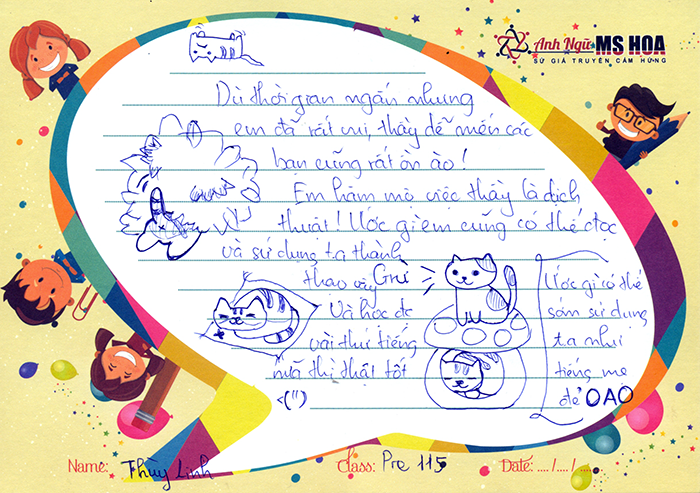 Anh Ngữ MS HOA
SỨ GIẢ TRUYỀN CẢM HỨNG
Dù thời gian ngắn nhưng
em đã rất vui, thầy dễ mến các
bạn cũng rất ồn ào!
Em hâm mộ việc thầy là dịch
thuật! Ước gì em cũng có thể đọc
và sử dụng ta thành
thạo vậy
Grừ
Và học đc
vài thứ tiếng
nữa thì thật tốt
<(")
Ước gì có thể
sớm sử dụng
ta như
tiếng mẹ
đẻ OAO
Name: Thùy Linh Class: Pre 115 Date: ..../..../.......